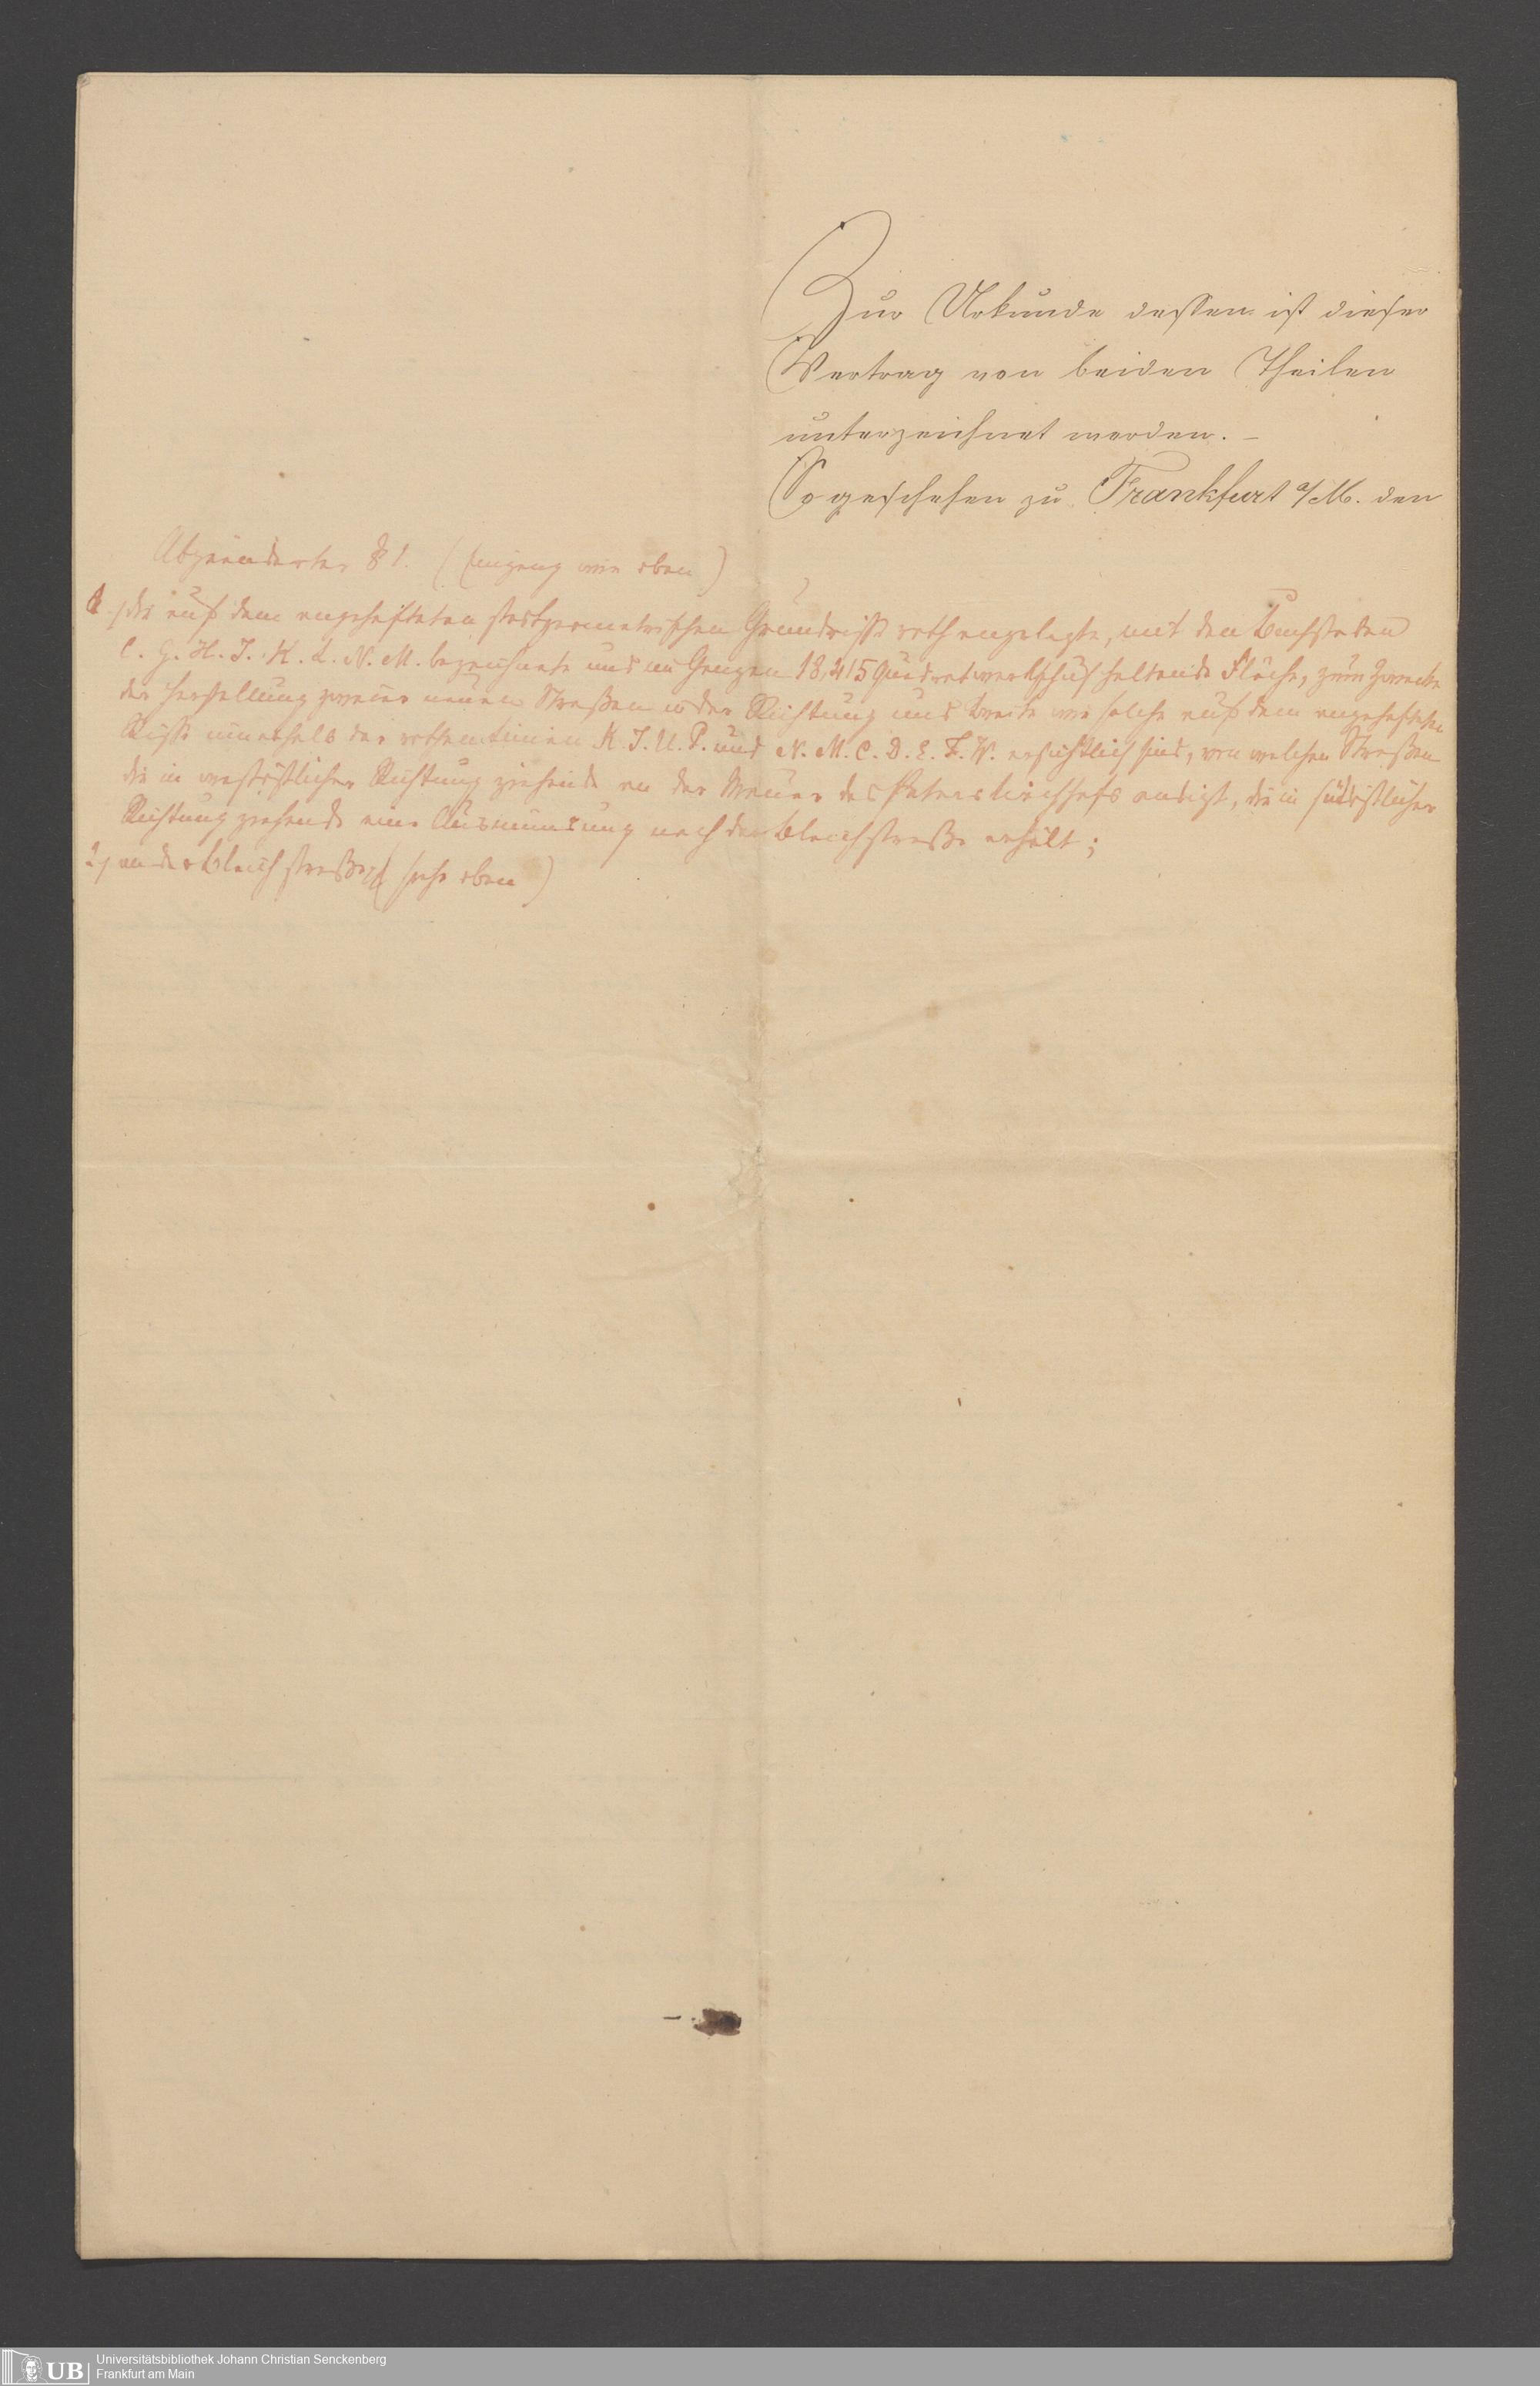 Zur Urkunde dessen ist dieser
Vertrag von beiden Theilen
unterzeichnet worden. –
So geschehen zu Frankfurt a/M. den
Abgeänderter § 1. (Eingang wie oben)
1./ die auf dem angehefteten stadtgeometrischen Grundrisse roth angelegte, mit den Buchstaben
C. G. H. J. K. L. N. M. bezeichnete und im Ganzen 18,215 Quadratwerkschuh haltende Fläche, zum Zwecke
der Herstellung zweier neuen Straßen in der Richtung und Breite wie solche auf dem angehefteten
Risse innerhalb der rothen Linien K. J. U. P. und N. M. C. D. E. F. W. ersichtlich sind, von welchen Straßen
die in westöstlicher Richtung ziehende an der Mauer des Peterskirchhofs endigt, die in südöstlicher
Richtung ziehende eine Ausmündung nach der Bleichstraße erhält;
2./ an der Bleichstraße (siehe oben)
Universitätsbibliothek Johann Christian Senckenberg
Frankfurt am Main
UB